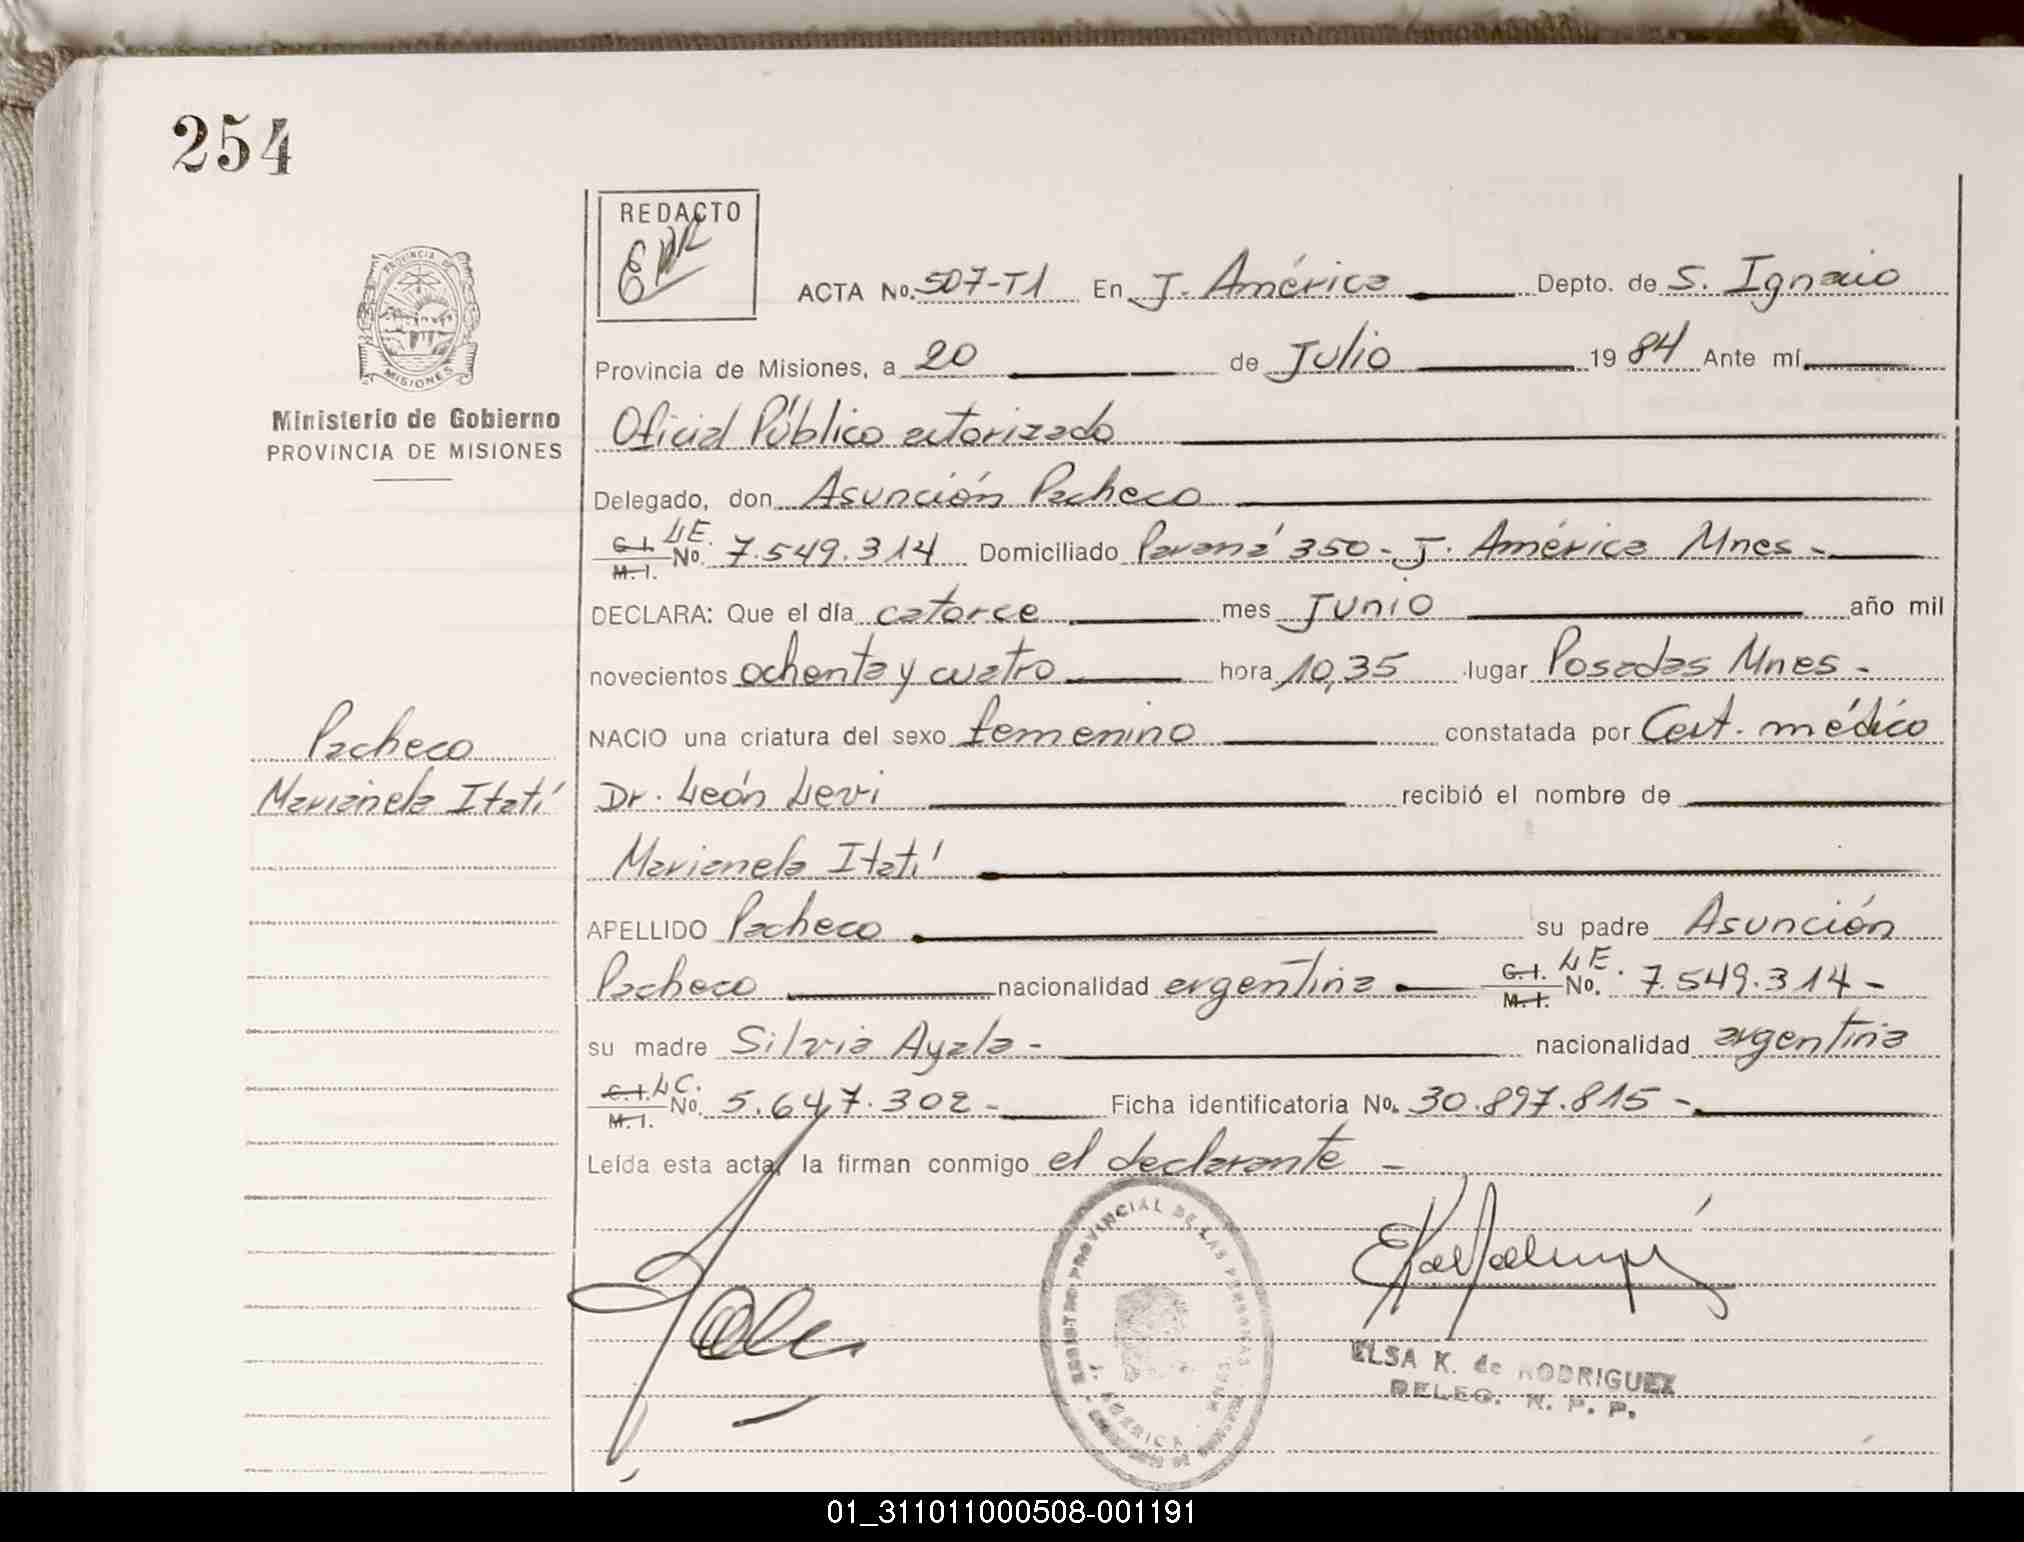 254
REDACTO
PROVINCIA DE
MISIONES
Ministerio de Gobierno
PROVINCIA DE MISIONES
ACTA No. 507-T1 En J. América Depto. de S. Ignacio
Provincia de Misiones, a 20 de Julio 19 84 Ante mí
Oficial Público autorizado
Delegado, don Asunción Pacheco
C.I. M.I. LE. No. 7.549.314 Domiciliado Paraná 350 - J. América Mnes -
DECLARA: Que el día catorce mes Junio año mil
novecientos ochenta y cuatro hora 10,35 lugar Posadas Mnes -
NACIO una criatura del sexo femenino constatada por Cert. médico
Dr. León Levi recibió el nombre de
Marianela Itatí
APELLIDO Pacheco su padre Asunción
Pacheco nacionalidad argentina C.I. M.I. LE. No. 7.549.314 -
su madre Silvia Ayala - nacionalidad argentina
C.I. M.I. LC. No. 5.647.302 - Ficha identificatoria No. 30.897.815 -
Leída esta acta, la firman conmigo el declarante -
Pacheco
Marianela Itatí
PROVINCIAL DE LAS PERSONAS
ELSA K. de RODRIGUEZ
DELEG. R. P. P.
01_311011000508-001191